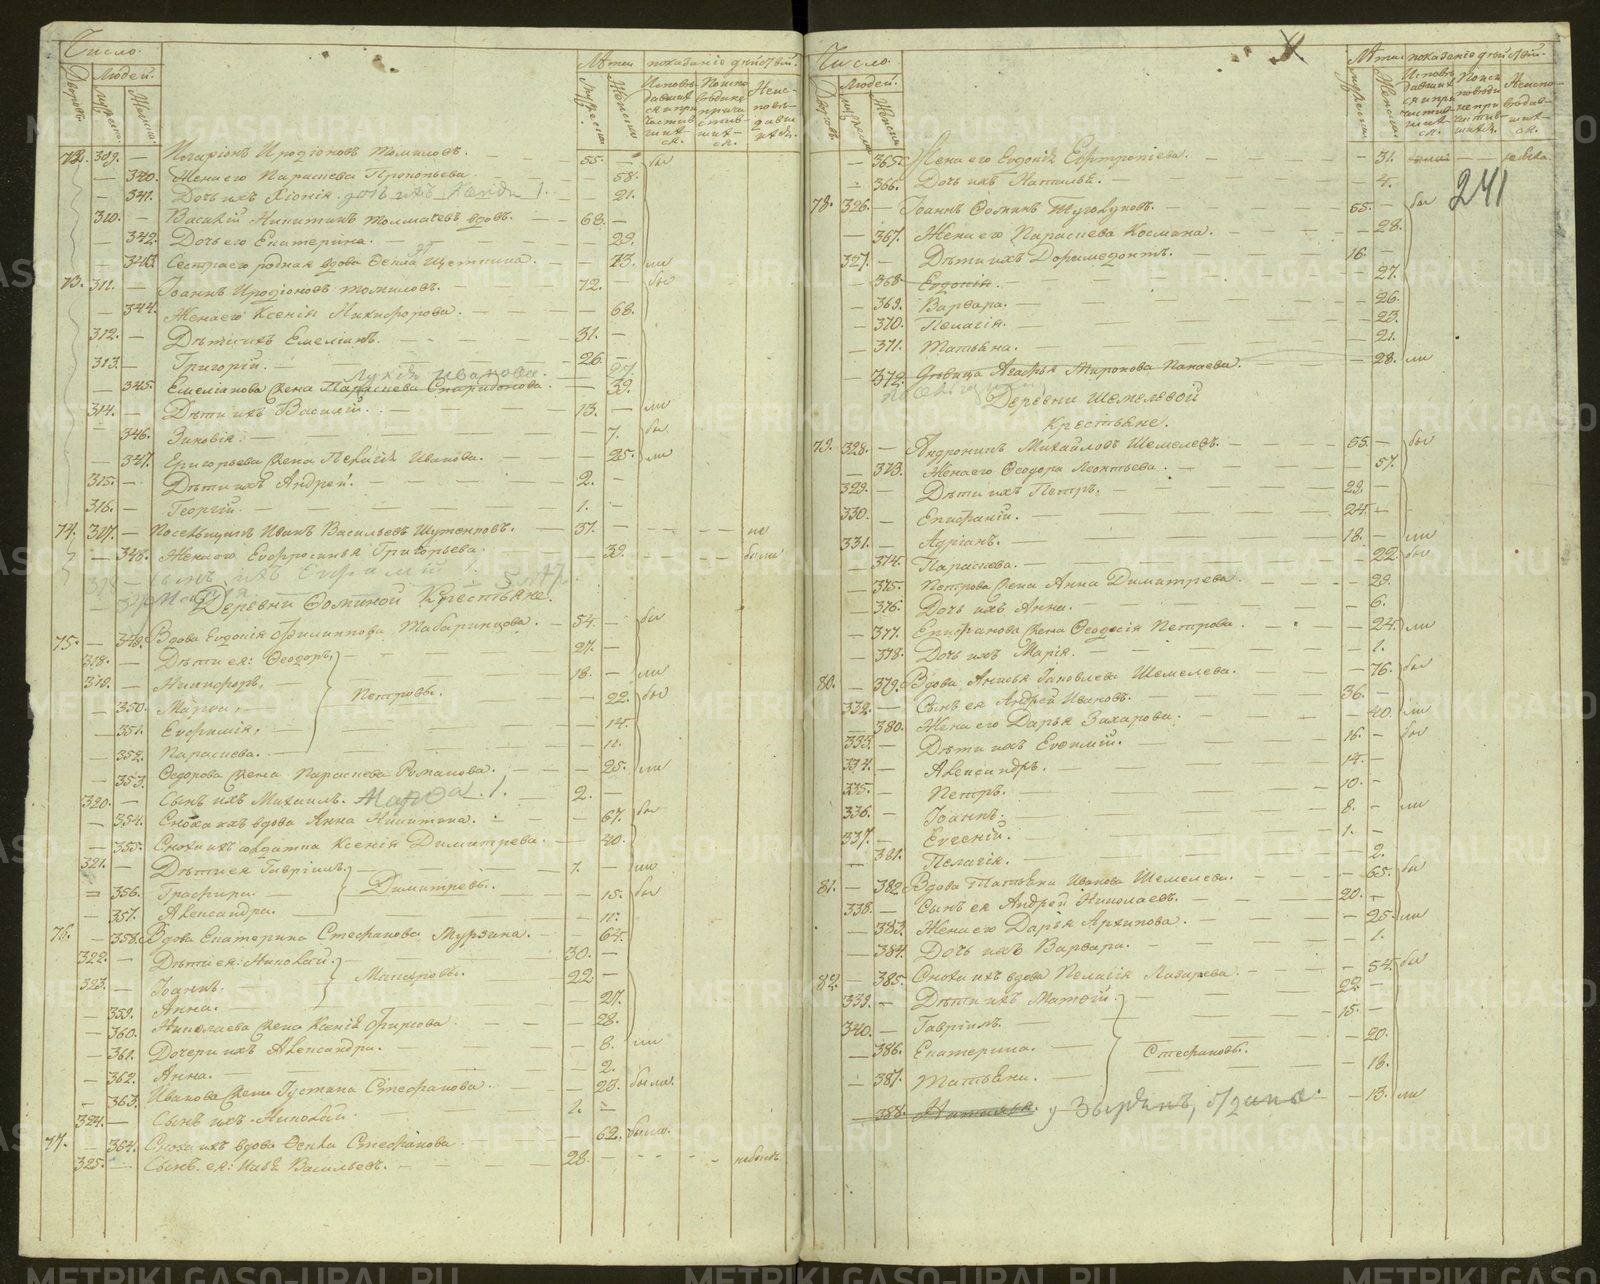 Число.
Дворовъ.
Людей.
мужеска.
женска.
Лѣта
мужеска.
женска.
показаніе дѣйствій.
72. 309. — Иродіоновъ Томиловъ. 55. — бы
— 340. Жена его Параскева Прокопьева. — 58.
— 341. Дочь ихъ Хіонія. — 21.
310. — Василій Никитинъ Толмачевъ вдовъ. 68. —
— 342. Дочь его Екатерина. — 29.
— 343. Сестра его родная вдова Ѳекла Щеткина. — 73. ли
73. 311. — Іоаннъ Иродіоновъ Томиловъ. 72. — бы
— 344. Жена его Ксенія Никифорова. — 68.
312. — Дѣти ихъ Емеліанъ. 31. —
313. — Григорій. 26. —
Лукія Иванова.
— 345. Емеліянова жена Параскева Спиридонова. — 39.
314. — Дѣти ихъ Василій. 13. — ли
— 346. Зиновія. — 7. бы
— 347. Григорьева жена Пелагія Иванова. — 25. ли
315. — Дѣти ихъ Андрей. 2. —
316. — Георгій. 1. —
74. 317. — Посельщикъ Иванъ Васильевъ 37. — не
— 348. Жена его Евфросинья Григорьева. — 39. были
Деревни Ѳоминой Крестьяне.
75. — 349. Вдова Евдокія Филиппова Табаринцова. — 54. — бы
318. — Дѣти ея: Ѳеодоръ, 27. —
319. — Никифоръ, Петровы. 18. — ли
— 350. Марѳа, — 22. бы
— 351. Евфимія, — 14.
— 352. Параскева. — 11.
— 353. Ѳедорова жена Параскева Романова. — 25. ли
320. — Сынъ ихъ Михаилъ. Марѳа. 1. 2. —
— 354. Сноха ихъ вдова Анна Никитина. — 67. бы
— 355. Сноха ихъ солдатка Ксенія Димитрева. — 40.
321. — Дѣти ея Гавріилъ. 7. — ли
— 356. Глафира. Димитревы. — 15. бы
— 357. Александра. — 11.
76. — 358. Вдова Екатерина Стефанова Мурзина. — 64.
322. — Дѣти ея: Николай. 30. —
323. — Іоаннъ. Макаровы. 22. —
— 359. Анна. — 27.
— 360. Николаева жена Ксенія Фирсова. — 28.
— 361. Дочери ихъ Александра. — 8. ли
— 362. Анна. — 2.
— 363. Иванова жена Іустина Стефанова. — 23. была.
324. — Сынъ ихъ Николай. 1. —
77. — 364. Сноха ихъ вдова Ѳекла Стефанова. — 62. была.
325. — Сынъ ея: Иванъ Васильевъ. 28. — небылъ
Число.
Дворовъ.
Людей.
женска
Лѣта
мужеска.
женска.
показаніе дѣйствій.
241
— 365. Жена его Евдокія Евтропіева. — 31.
— 366. Дочь ихъ Наталья. — 4.
78. 326. — Іоаннъ Ѳоминъ 65. — бы
— 367. Жена его Параскева Космина. — 28.
327. — Дѣти ихъ Доримедонтъ. 16. —
— 368. Евдокія. — 27.
— 369. Варвара. — 26.
— 370. Пелагія. — 23.
— 371. Татьяна. — 21.
— 372. Дѣвица Агафья Миронова Панаева. — 28. ли
Деревни Шемелевой
Крестьяне.
79. 328. — Андроникъ Михайловъ Шемелевъ. 55. — бы
— 373. Жена его Ѳеодора Леонтьева. — 57.
329. — Дѣти ихъ Петръ, 29. —
330. — Епифаній. 24. —
331. — Адріанъ. 18. — ли
— 374. Параскева. — 22. бы
— 375. Петрова жена Анна Димитрева. — 29.
— 376. Дочь ихъ Анна. — 6.
— 377. Епифанова жена Ѳеодосія Петрова. — 24. ли
— 378. Дочь ихъ Марія. — 1.
80. — 379. Вдова Анисья Іаковлева Шемелева. — 76. бы
332. — Сынъ ея Андрей Ивановъ. 36. —
— 380. Жена его Дарья Захарова. — 40. ли
333. — Дѣти ихъ Евѳимій. 16. — бы
334. — Александръ. 14. —
335. — Петръ. 10. —
336. — Іоаннъ. 8. — ли
337. — Евгеній. 1. —
— 381. Пелагія. — 2.
81. — 382. Вдова Татьяна Иванова Шемелева. — 65. бы
338. — Сынъ ея Андрей Николаевъ. 20. —
— 383. Жена его Дарья Архипова. — 25. ли
— 384. Дочь ихъ Варвара. — 1.
82. — 385. Сноха ихъ вдова Пелагія Лазарева. — 54. бы
339. — Дѣти ихъ Матѳій. 22. —
340. — Гавріилъ. 15. —
— 386. Екатерина. Стефановы. — 20.
— 387. Татьяна. — 18.
— 388. Наталья. — 13. ли
METRIKI.GASO-URAL.RU